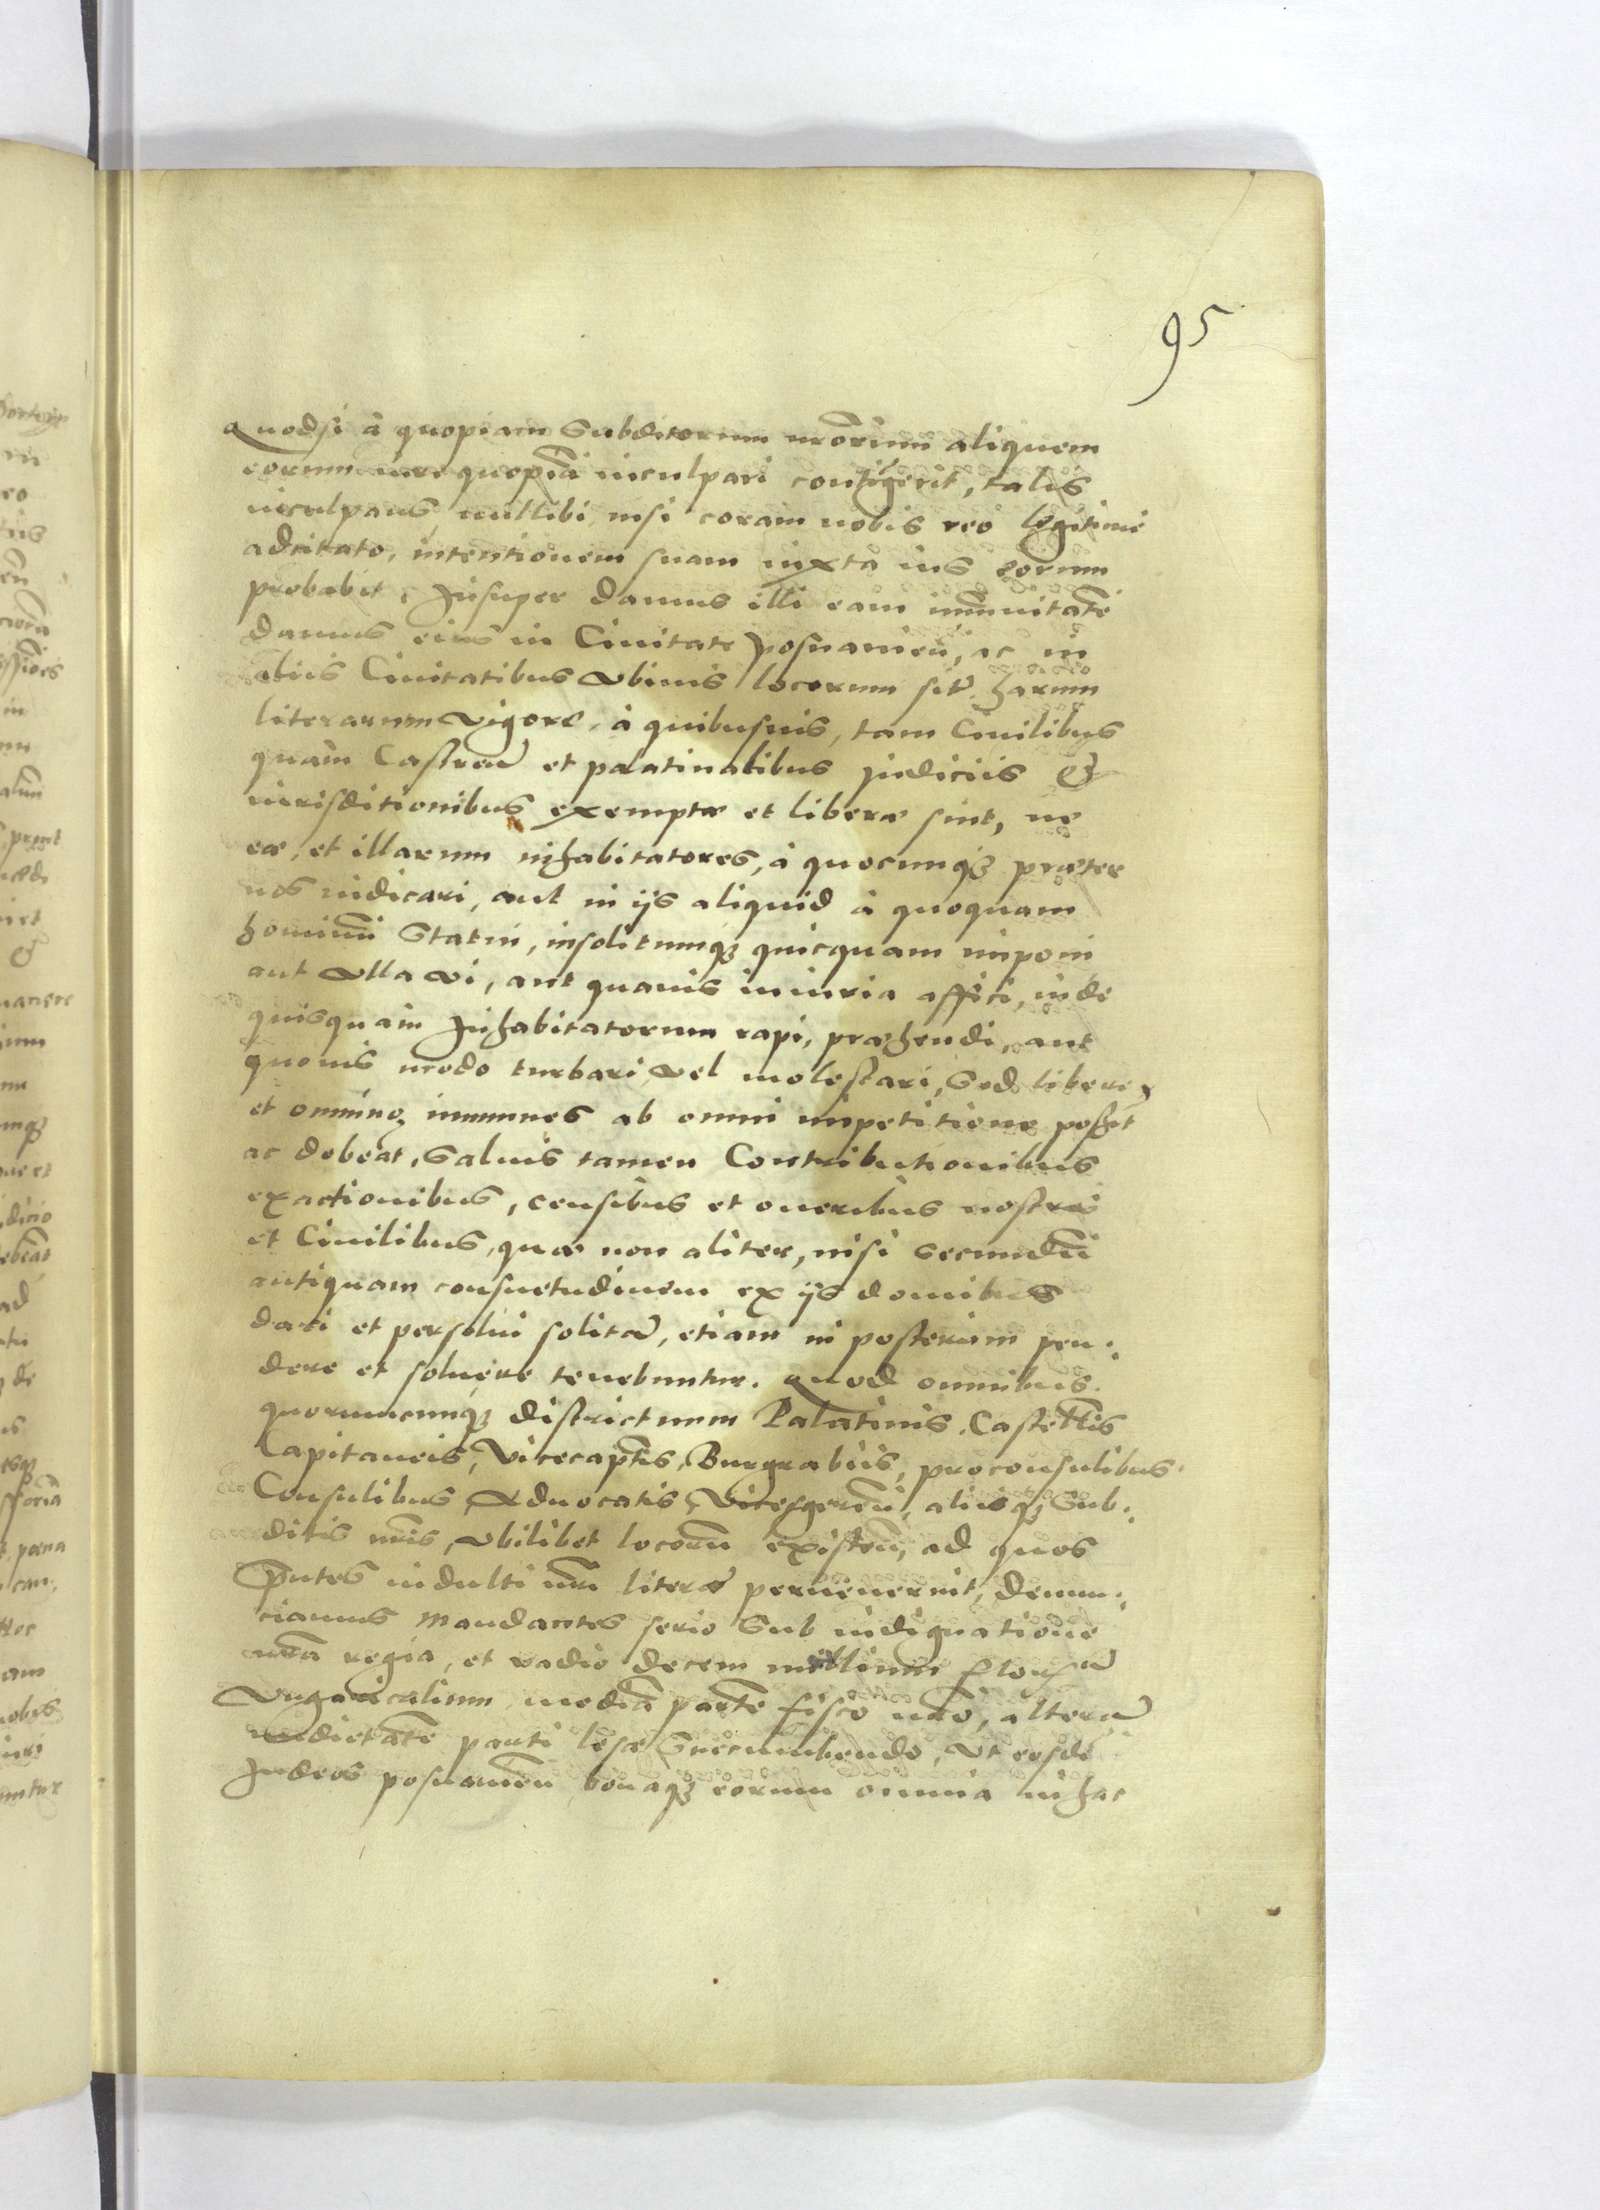 95
Quodsi à quopiam Subditorum nrõrum aliquem
eorum iure quopiã inculpari contigerit, talis
inculpans nullibi nisi coram nobis reo legitime
adcitato, intentionem suam iuxta ius eorum
probabit. Insuper damus illi eam im̃unitatẽ
Domus eius in Ciuitate posnanieñ, ac in
aliis Ciuitatibus vbiuis locorum sit̃ harum
literarum vigore, à quibusuis, tam Ciuilibus
quam Castreñ et palatinalibus judiciis &
iurisditionibus exemptæ et liberæ sint, ne
eæ, et illarum inhabitatores, à quocunqȝ præter
nos iudicari, aut in ijs aliquid à quoquam
hominũ Statui, insolitumqȝ quicquam imponi
aut vlla vi, aut quauis iniuria affici, inde
quisquam Inhabitatorum rapi, præhendi, aut
quouis modo turbari vel molestari, Sed libere
et omnino immunes ab omni impetitione possit
ac debeat, Saluis tamen Contributionibus
exactionibus, censibus et oneribus nostris
et Ciuilibus, quæ non aliter, nisi secundũ
antiquam consuetudinem ex ijs domibus
dari et persolui solitæ, etiam in posterum pen:
dere et soluere tenebuntur. Quod omnibus
quorumcunqȝ districtuum Palatinis, Castellis
Capitaneis, Vicecaptis, Burgrabiis, proconsulibus
Consulibus, Aduocatis, Vicesgereñ, aliisqȝ Sub:
ditis nris, vbilibet locorũ existeñ, ad quos
Pntes indulti nri literæ peruenerint, denun:
ciamus mandantes serio Sub indignatione
nra regia, et vadio decem millium floreñ
Vngaricalium mediã partẽ fisco nro, alterã
medietatẽ parti lesæ Succumbendo, Vt eosdẽ
Judeos posnanieñ bonaqȝ eorum omnia in hac